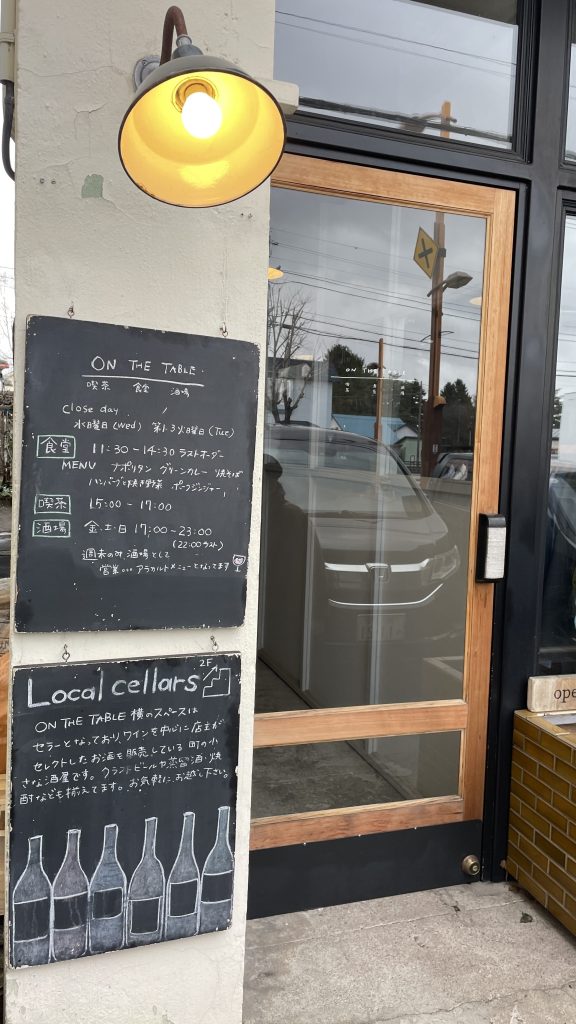 ON THE TABLE.
喫茶 食堂 酒場
close day.
水曜日(wed) 第1.3火曜日(Tue)
食堂 11:30-14:30 ラストオーダー
MENU ナポリタン グリーンカレー 焼そば
ハンバーグと焼き野菜 ポークジンジャー
喫茶 15:00-17:00
酒場 金.土.日 17:00-23:00
(22:00ラスト)
週末のみ酒場として
営業... アラカルトメニューとなってます
ON THE TABLE
喫茶 食堂 酒場
2F
Local cellars
ON THE TABLE 横のスペースは
セラーとなっており、ワインを中心に店主が
セレクトしたお酒を販売している町の小
さな酒屋です。クラフトビールや蒸留酒・焼
酎なども揃えてます。お気軽にお越し下さい。
ope